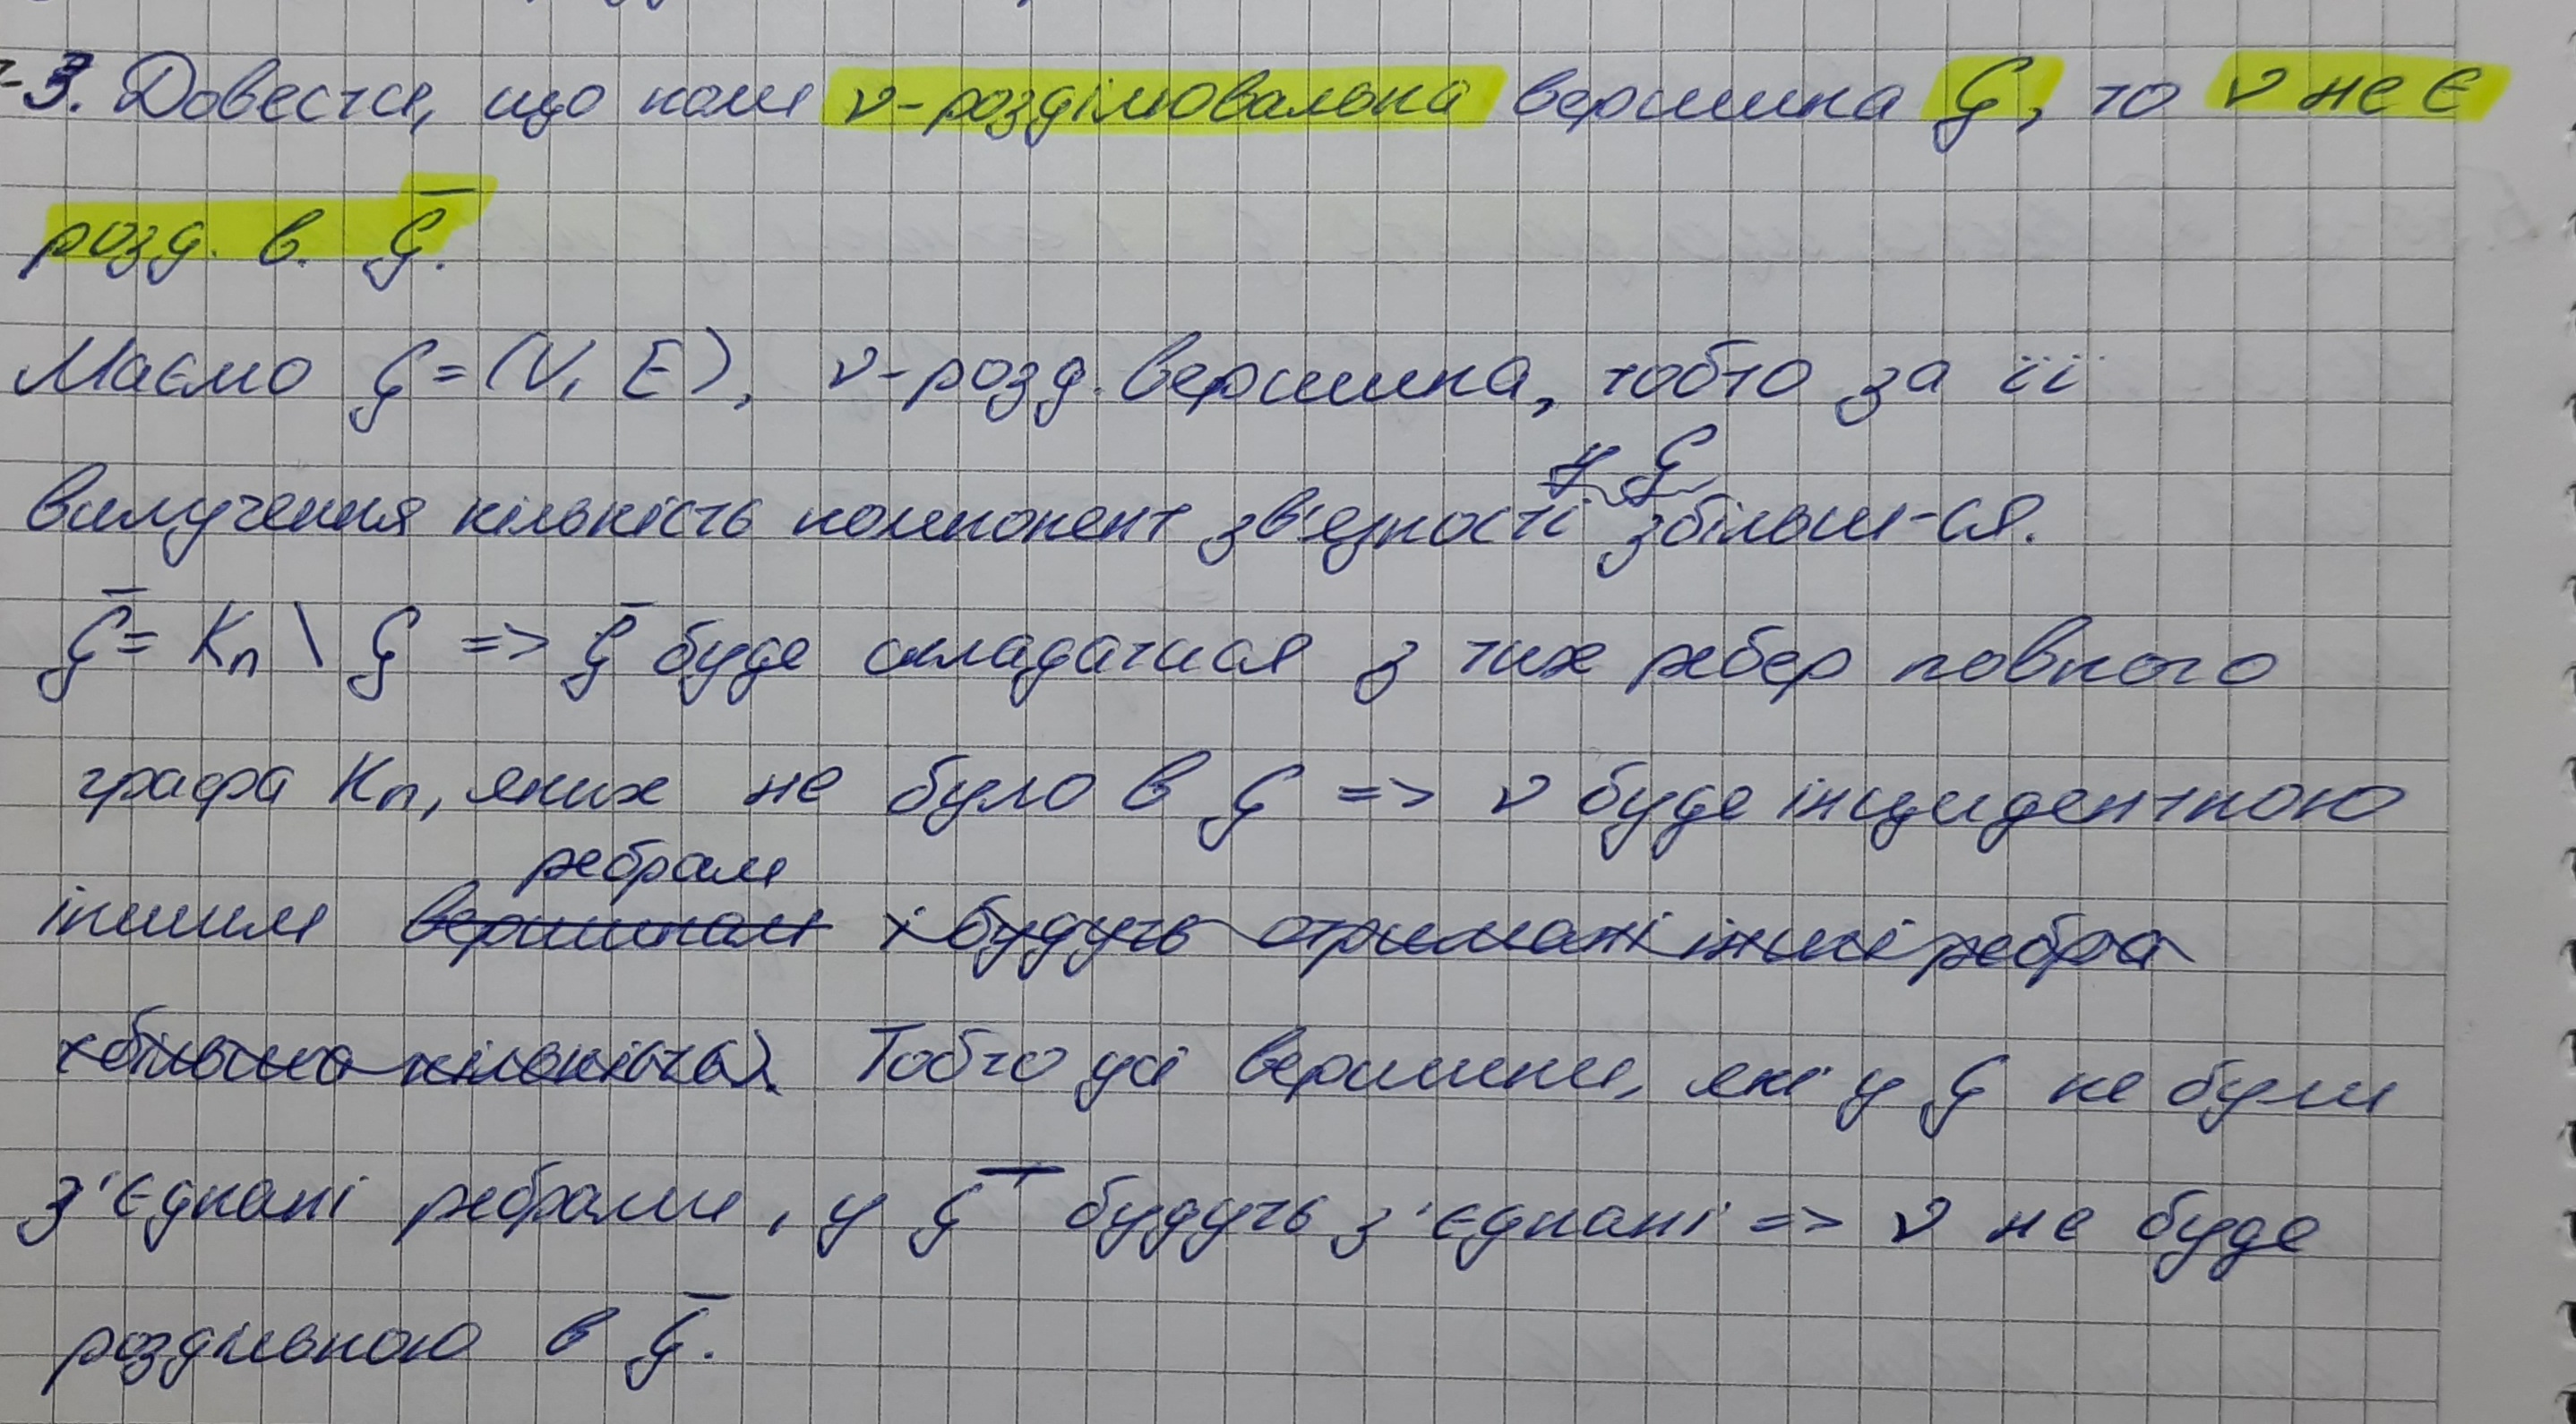 3. Довести, що коли v-розділювальна вершина G, то v не є
розд. в. G̅.
Маємо G = (V, E), v-розд. вершина, тобто за її
вилучення кількість компонент зв'язності у G збільш-ся.
G̅ = Kn \ G => G̅ буде складатися з тих ребер повного
графа Kn, яких не було в G => v буде інцидентною
іншим вершинам ребрам і будуть отримані інші ребра
(більша кількість). Тобто усі вершини, які у G не були
з'єднані ребрами, у G̅ будуть з'єднані => v не буде
роздільною в G̅.